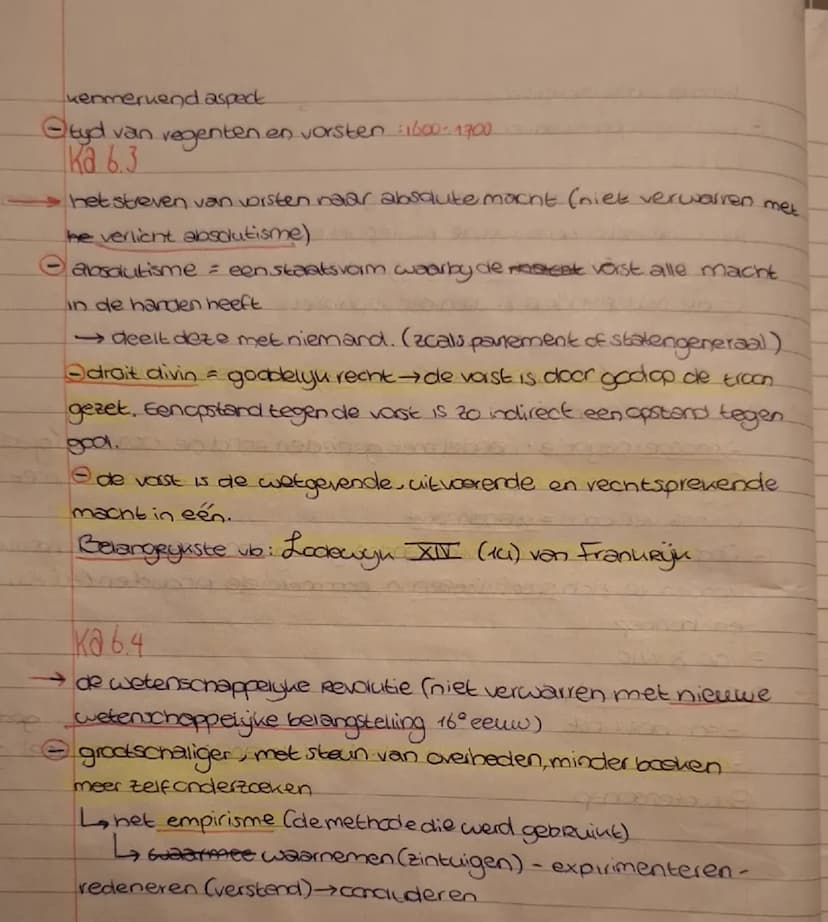 kenmerkend aspect
⊖ tijd van regenten en vorsten : 1600-1700
Ka 6.3
→ het streven van vorsten naar absolute macht (niet verwarren met
he verlicht absolutisme)
⊖ absolutisme = een staatsvorm waarbij de vorst alle macht
in de handen heeft
→ deelt deze met niemand. (zoals parlement of statengeneraal)
⊖ droit divin = goddelijk recht → de vorst is door god op de troon
gezet. Een opstand tegen de vorst is zo indirect een opstand tegen
god.
⊖ de vorst is de wetgevende, uitvoerende en rechtsprekende
macht in eén.
Belangrijkste vb: Lodewijk XIV (14) van Frankrijk
Ka 6.4
→ de wetenschappelijke Revolutie (niet verwarren met nieuwe
wetenschappelijke belangstelling 16e eeuw)
⊖ grootschaliger, met steun van overheden, minder boeken
meer zelf onderzoeken
↳ het empirisme (de methode die werd gebruikt)
↳ waarmee waarnemen (zintuigen) - expirimenteren -
redeneren (verstand) → concluderen